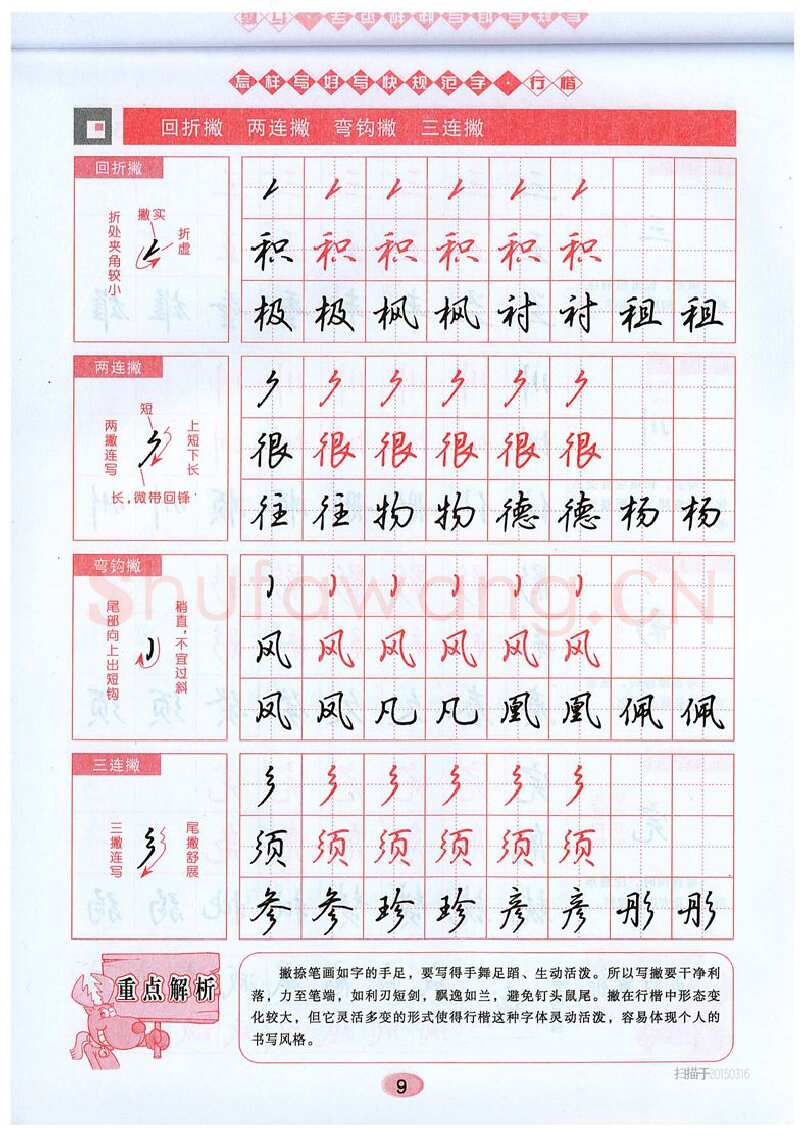 怎样写好写快规范字·行楷
回折撇 两连撇 弯钩撇 三连撇
回折撇
撇实
折虚
折处夹角较小
积 积 积 积 积 积
极 极 枫 枫 衬 衬 租 租
两连撇
短
两撇连写
上短下长
长,微带回锋
很 很 很 很 很 很
往 往 物 物 德 德 杨 杨
弯钩撇
尾部向上出短钩
稍直,不宜过斜
风 风 风 风 风 风
凤 凤 凡 凡 凰 凰 佩 佩
三连撇
三撇连写
尾撇舒展
须 须 须 须 须 须
参 参 珍 珍 彦 彦 彤 彤
重点解析
撇捺笔画如字的手足，要写得手舞足蹈、生动活泼。所以写撇要干净利
落，力至笔端，如利刃短剑，飘逸如兰，避免钉头鼠尾。撇在行楷中形态变
化较大，但它灵活多变的形式使得行楷这种字体灵动活泼，容易体现个人的
书写风格。
9
扫描于20150316
Shufawang.CN